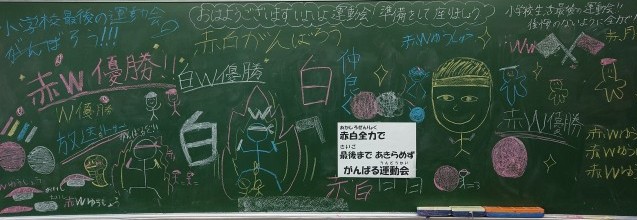 小学校最後の運動会
がんばろう!!!
おはようございます!いよいよ運動会!準備をして座りましょう
小学校生活最後の運動会!!
後悔のないように全力で
赤白がんばろう
赤Wゆうしょう
赤W優勝!!
白W優勝
白
仲良く
W優勝
放送
白
赤W優勝
おかしろぜんしく
赤白全力で
さいご
最後まで あきらめず
うんどうかい
がんばる運動会
赤白
赤Wゆうしょう